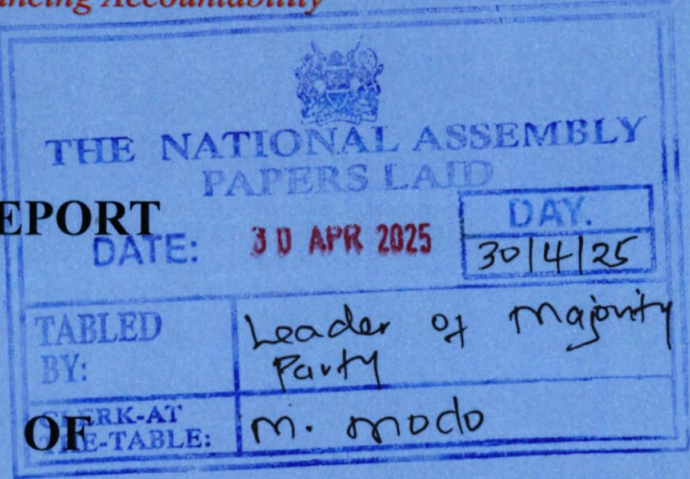 Enhancing Accountability
THE NATIONAL ASSEMBLY
PAPERS LAID
REPORT
DATE: 30 APR 2025
DAY.
30/4/25
TABLED BY:
Leader of Majority Party
OF
CLERK-AT THE-TABLE:
M. Modo